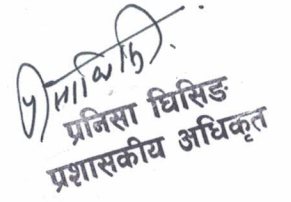 प्रजिसा घिसिङ
प्रशासकीय अधिकृत